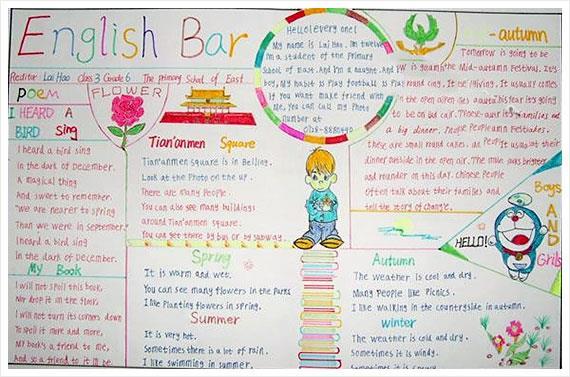 English Bar
Reditor: Lai Hao Class 3 Grade 6 The primary School of East
POEM
I HEARD A
BIRD Sing
I heard a bird sing
In the dark of December.
A magical thing
And sweet to remember.
"We are nearer to spring
Than we were in september."
I heard a bird sing
In the dark of December.
My Book
I will not spoil this book,
Nor drop it on the floor,
I will not turn its corners down
To spoil it more and more,
My book's a friend to me,
And so a friend to it I'll be.
FLOWER
Tian'anmen Square
Tian'anmen square is in Beijing.
Look at the Photo on the up.
There are many People.
You can also see many buildings
around Tian'anmen square.
You can get there by bus or by subway.
Hello! everyone!
My name is Lai Hao. I'm twelve
I'm a student of the Primary
School of East. And I'm a
boy, My habit is Play football
If you want make friend with
Me, You can call my Phot
number at
-autumn
Tomorrow is going to be
the Mid-autumn Festival. It's
It usually comes
in the open air
to be on
a big dinner.
are small round cakes. People used to
dinner outside in the open air. The
and rounder on this day. Chinese People
Often talk about their families and
tell the story of Change.
Boys
AND
Grils
HELLO!
Spring
It is warm and wet.
You can see many flowers in the Parks
I like Planting flowers in spring.
Summer
It is very hot.
Sometimes there is a lot of rain.
I like swimming in summer.
Autumn
The weather is cool and dry.
Many People like Picnics.
I like walking in the countryside in autumn.
winter
The weather is cold and dry.
Sometimes it is windy.